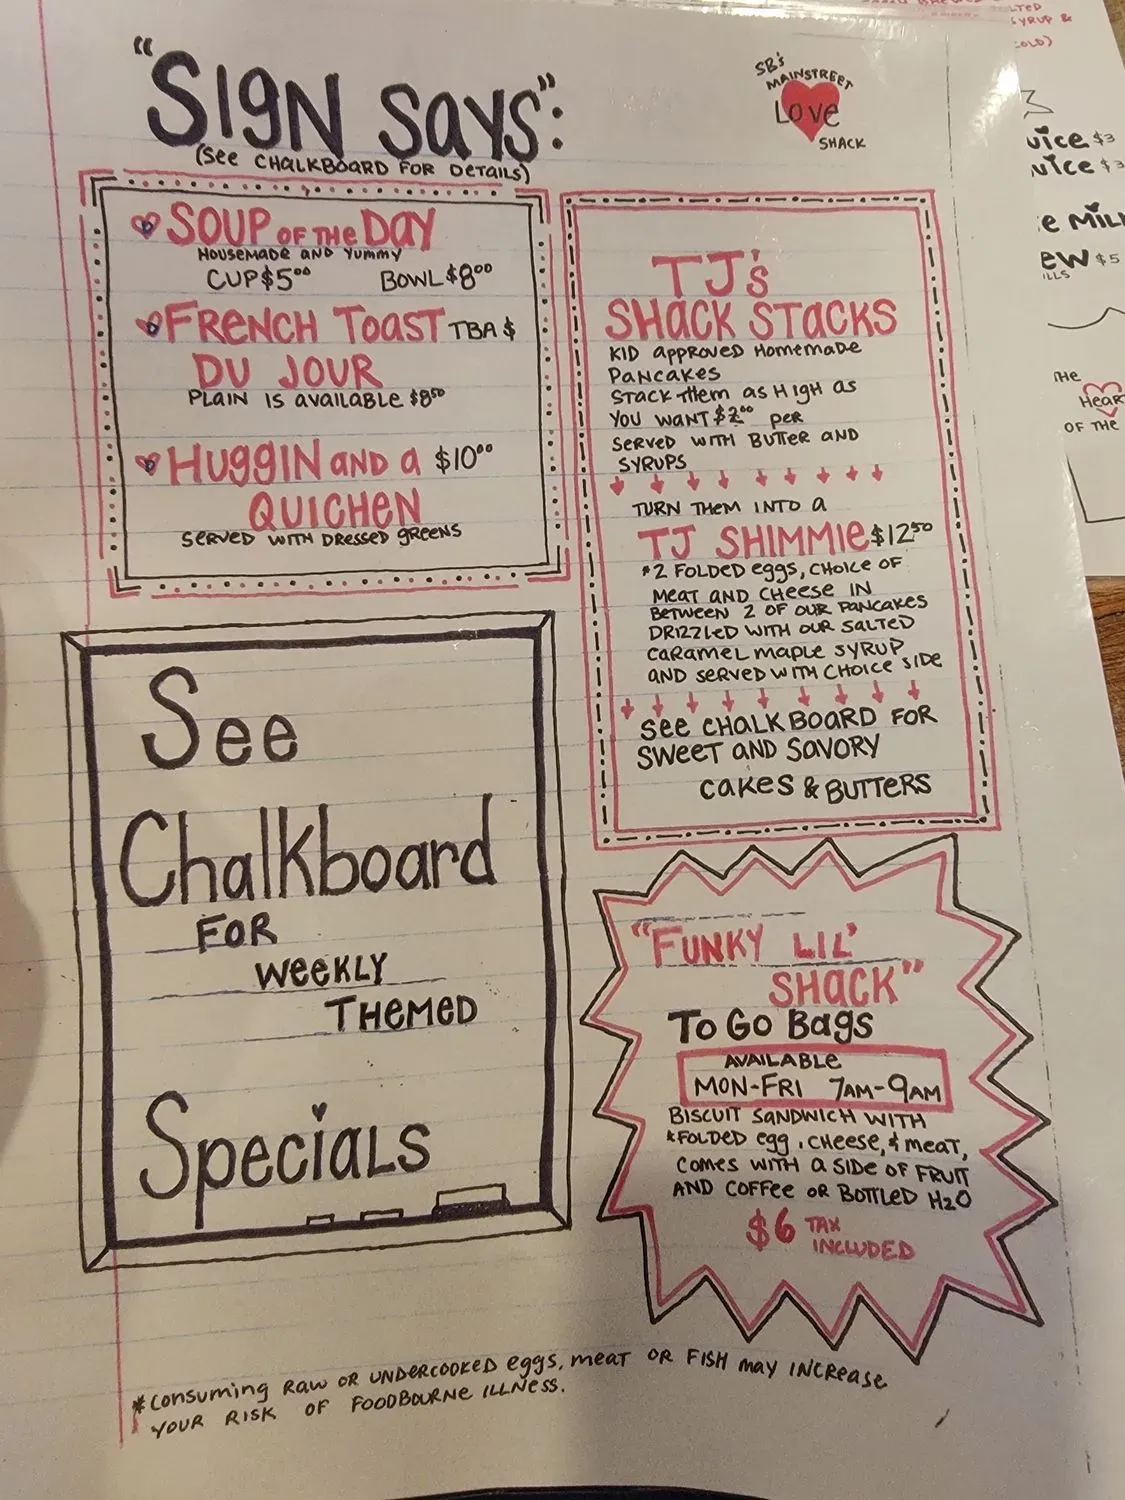 "SIGN SAYS":
(SEE CHALKBOARD FOR DETAILS)
SB's
MAINSTREET
LOVE
SHACK
SOUP OF THE DAY
HOUSEMADE AND YUMMY
CUP $5.00 BOWL $8.00
FRENCH TOAST TBA $
DU JOUR
PLAIN IS AVAILABLE $8.50
HUGGIN AND A $10.00
QUICHEN
SERVED WITH DRESSED GREENS
TJ's
SHACK STACKS
KID APPROVED HOMEMADE
PANCAKES
STACK THEM AS HIGH AS
YOU WANT $2.00 PER
SERVED WITH BUTTER AND
SYRUPS
TURN THEM INTO A
TJ SHIMMIE $12.50
*2 FOLDED EGGS, CHOICE OF
MEAT AND CHEESE IN
BETWEEN 2 OF OUR PANCAKES
DRIZZLED WITH OUR SALTED
CARAMEL MAPLE SYRUP
AND SERVED WITH CHOICE SIDE
SEE CHALKBOARD FOR
SWEET AND SAVORY
CAKES & BUTTERS
See
Chalkboard
FOR
WEEKLY
THEMED
Specials
"FUNKY LIL'
SHACK"
TO GO BAGS
AVAILABLE
MON-FRI 7AM-9AM
BISCUIT SANDWICH WITH
*FOLDED EGG, CHEESE, & MEAT,
COMES WITH A SIDE OF FRUIT
AND COFFEE OR BOTTLED H2O
$6 TAX
INCLUDED
*CONSUMING RAW OR UNDERCOOKED EGGS, MEAT OR FISH MAY INCREASE
YOUR RISK OF FOODBOURNE ILLNESS.
SYRUP &
COLD)
$3
EW $5
THE
HEART
OF THE